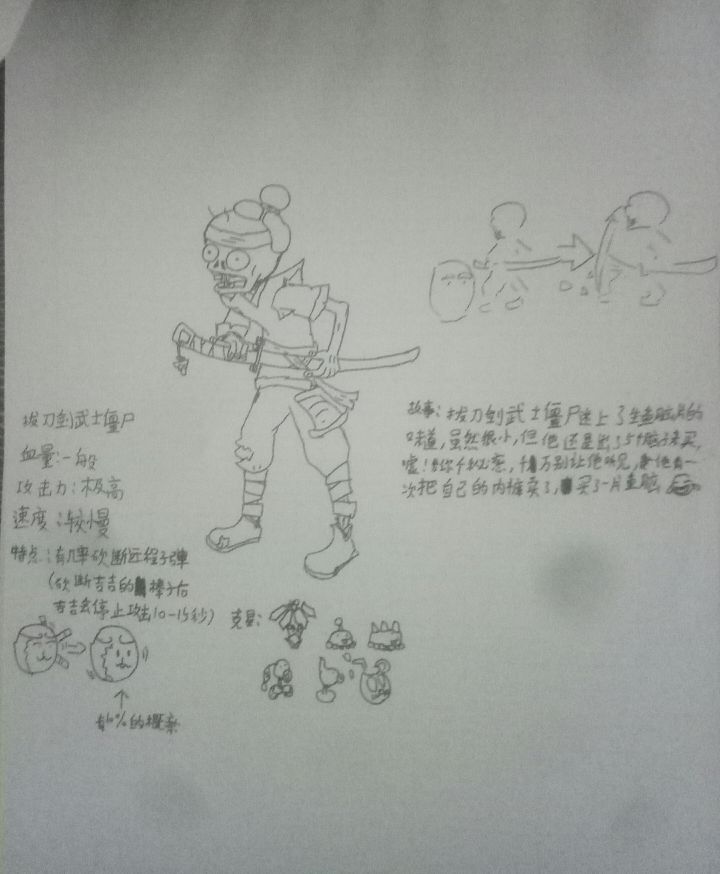 拔刀剑武士僵尸
血量:一般
攻击力:极高
速度:较慢
特点:有几率砍断远程子弹
(砍断吉吉的棒子后
吉吉会停止攻击10-15秒)
克星:
有10%的概率
故事:拔刀剑武士僵尸迷上了生鱼脑片的
味道,虽然很小,但他还是出了5个脑子来买,
嘘!千万别让他听见,他有一
次把自己的内裤卖了,买了一片鱼脑